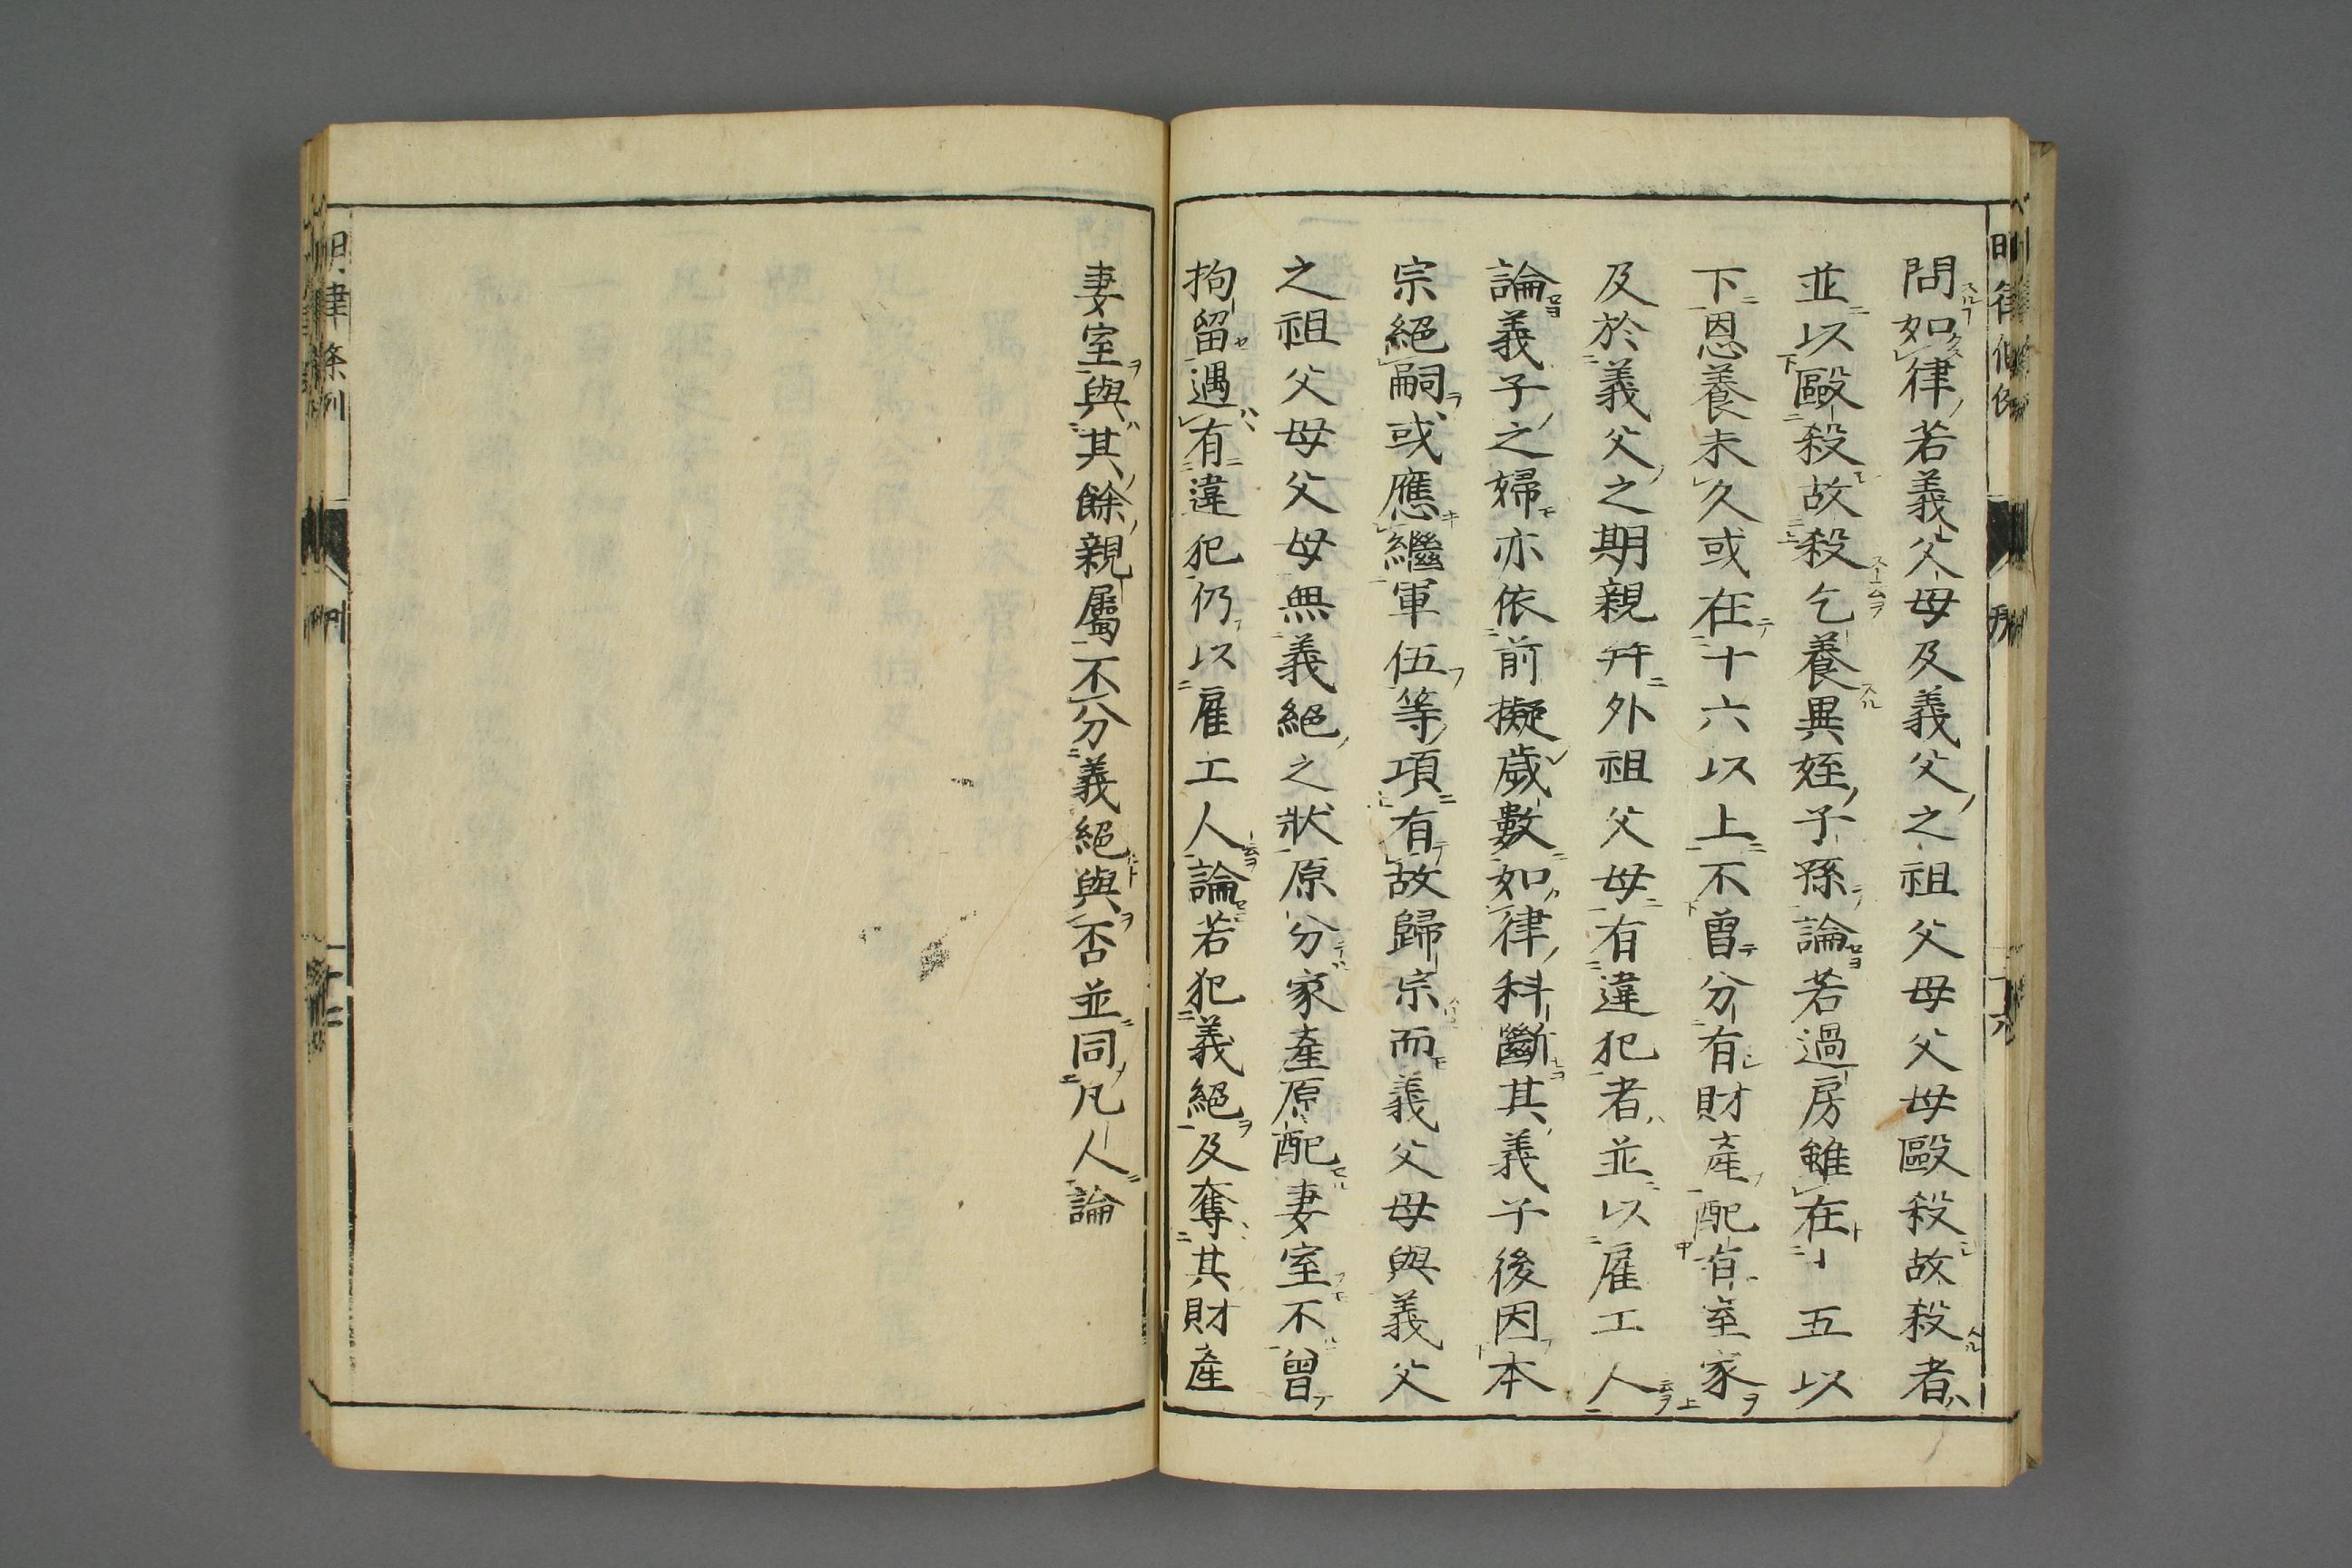 問如律若義父母及義父之祖父母父母毆殺故殺者
並以毆殺故殺乞養異姓子孫論若過房雖在十五以
下恩養未久或在十六以上不曾分有財產配有室家
及於義父之期親幷外祖父母有違犯者並以雇工人
論義子之婦亦依前擬歲數如律科斷其義子後因本
宗絕嗣或應繼軍伍等項有故歸宗而義父母與義父
之祖父母父母無義絕之狀原分家產原配妻室不曾
拘留遇有違犯仍以雇工人論若犯義絕及奪其財產
妻室與其餘親屬不分義絕與否並同凡人論
明律條例